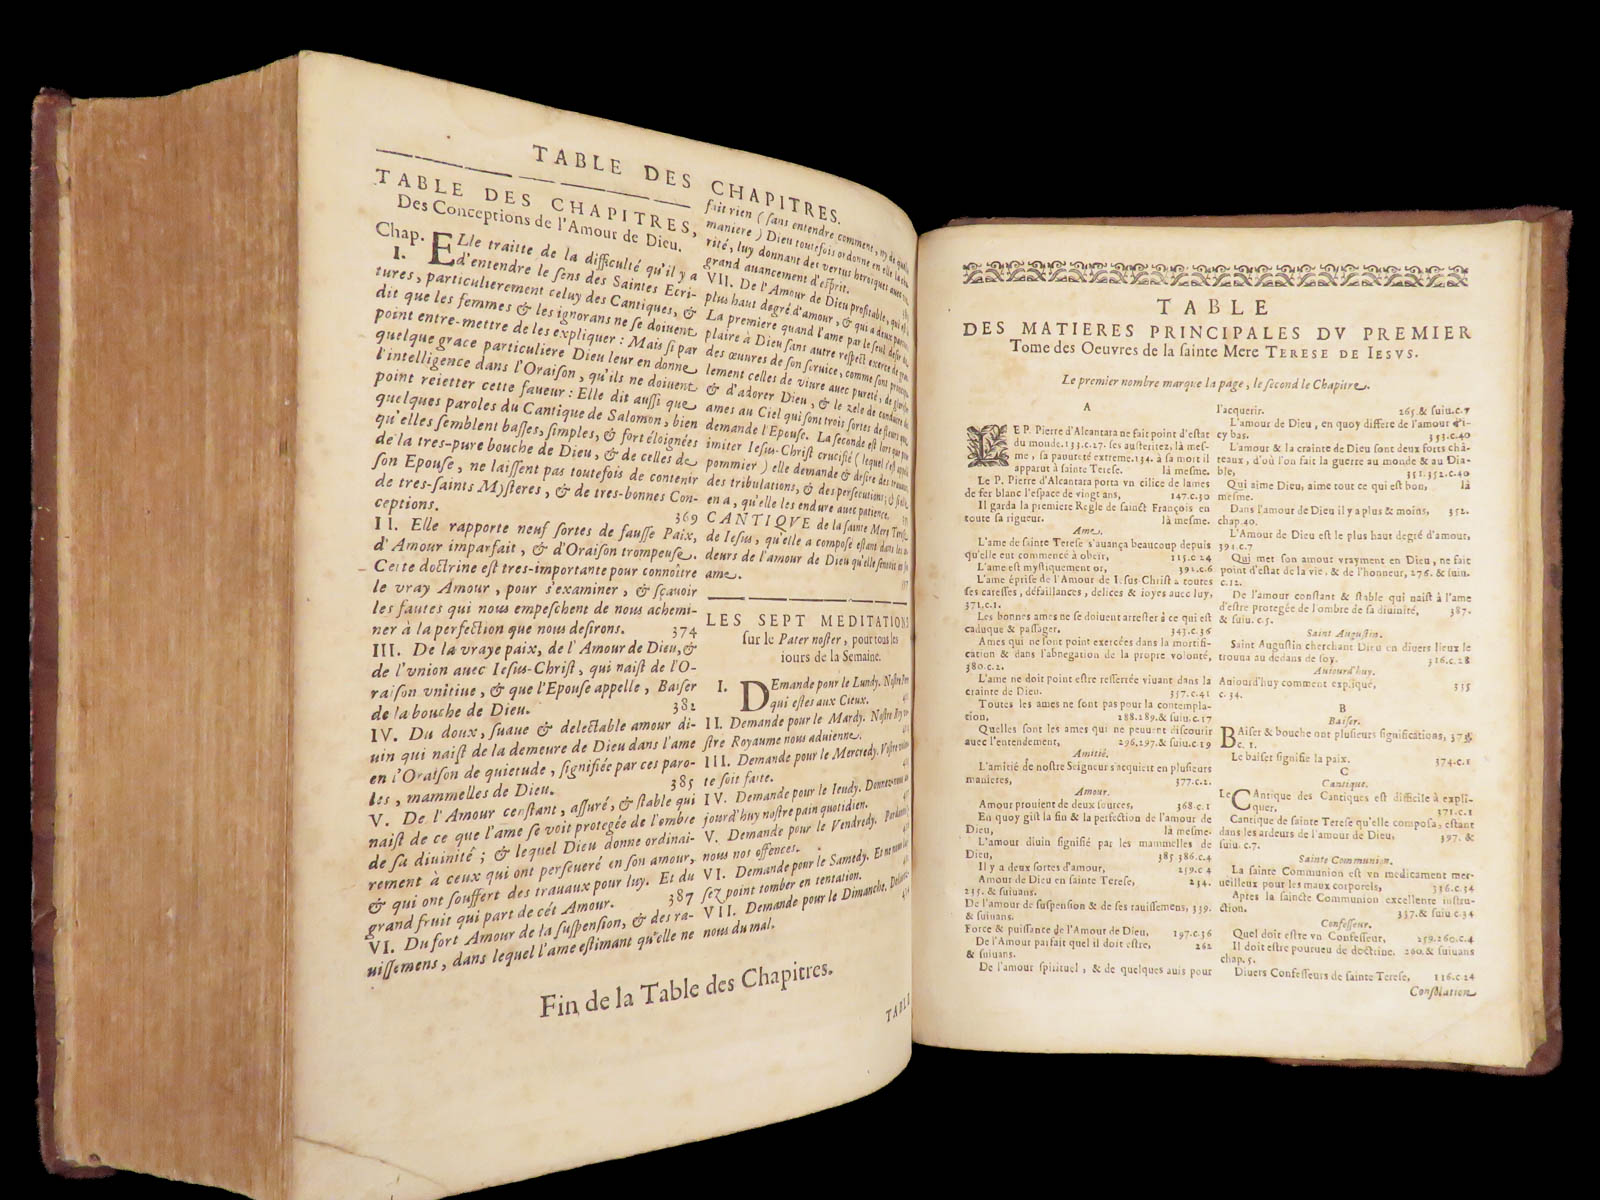 TABLE DES CHAPITRES.
TABLE DES CHAPITRES,
Des Conceptions de l'Amour de Dieu.
Chap. I. ELle traitte de la difficulté qu'il y a
d'entendre le sens des Saintes Ecri-
tures, particulierement celuy des Cantiques, &
dit que les femmes & les ignorans ne se doiuent
point entre-mettre de les expliquer : Mais si par
quelque grace particuliere Dieu leur en donne
l'intelligence dans l'Oraison, qu'ils ne doiuent
point reietter cette faueur : Elle dit aussi que
quelques paroles du Cantique de Salomon, bien
qu'elles semblent basses, simples, & fort éloignées
de la tres-pure bouche de Dieu, & de celles de
son Epouse, ne laissent pas toutefois de contenir
de tres-saints Mysteres, & de tres-bonnes Con-
ceptions. 369
II. Elle rapporte neuf sortes de fausse Paix,
d'Amour imparfait, & d'Oraison trompeuse.
Cette doctrine est tres-importante pour connoître
le vray Amour, pour s'examiner, & sçauoir
les fautes qui nous empeschent de nous achemi-
ner à la perfection que nous desirons. 374
III. De la vraye paix, de l'Amour de Dieu, &
de l'vnion auec Iesus-Christ, qui naist de l'O-
raison vnitiue, & que l'Epouse appelle, Baiser
de la bouche de Dieu. 382
IV. Du doux, suaue & delectable amour di-
uin qui naist de la demeure de Dieu dans l'ame
en l'Oraison de quietude, signifiée par ces paro-
les, mammelles de Dieu. 385
V. De l'Amour constant, assuré, & stable qui
naist de ce que l'ame se voit protegée de l'ombre
de sa diuinité ; & lequel Dieu donne ordinai-
rement à ceux qui ont perseueré en son amour,
& qui ont souffert des trauaux pour luy. Et du
grand fruit qui part de cét Amour. 387
VI. Du fort Amour de la suspension, & des ra-
uissemens, dans lequel l'ame estimant qu'elle ne
fait rien ( sans entendre comment, ny de quelle
maniere ) Dieu toutefois ordonne en elle la cha-
rité, luy donnant des vertus heroiques auec
grand auancement d'esprit.
VII. De l'Amour de Dieu profitable, qui est le
plus haut degré d'amour, & qui a deux parties.
La premiere quand l'ame par le seul desir de
plaire à Dieu sans autre respect exerce de gran-
des œuures de son seruice, comme sont principa-
lement celles de viure auec pureté, de glorifier
& d'adorer Dieu, & le zele de conduire des
ames au Ciel qui sont trois sortes de fleurs que
demande l'Epouse. La seconde est lors que pour
imiter Iesus-Christ crucifié ( lequel s'est appellé
pommier ) elle demande & desire des trauaux,
des tribulations, & des persecutions ; & si elle
en a, qu'elle les endure auec patience.
CANTIQVE de la sainte Mere Terese
de Iesus, qu'elle a composé estant dans les ar-
deurs de l'amour de Dieu qu'elle sentoit en son
ame. 397
LES SEPT MEDITATIONS
sur le Pater noster, pour tous les
iours de la Semaine.
I. DEmande pour le Lundy. Nostre Pere
qui estes aux Cieux.
II. Demande pour le Mardy. Nostre
stre Royaume nous aduienne.
III. Demande pour le Mercredy. Vostre volon-
te soit faite.
IV. Demande pour le Ieudy. Donnez-nous au-
jourd'huy nostre pain quotidien.
V. Demande pour le Vendredy. Pardonnez
nous nos offences.
VI. Demande pour le Samedy. Et ne nous lais-
sez point tomber en tentation.
VII. Demande pour le Dimanche. Deliurez
nous du mal.
Fin de la Table des Chapitres.
TABLE
TABLE
DES MATIERES PRINCIPALES DV PREMIER
Tome des Oeuvres de la sainte Mere TERESE DE IESVS.
Le premier nombre marque la page, le second le Chapitre.
A
LE P. Pierre d'Alcantara ne fait point d'estat
du monde. 133.c.27. ses austeritez, là mes-
me, sa pauureté extreme. 134. à sa mort il
apparut à sainte Terese. là mesme.
Le P. Pierre d'Alcantara porta vn cilice de lames
de fer blanc l'espace de vingt ans, 147.c.30
Il garda la premiere Regle de sainct François en
toute sa rigueur. là mesme.
Ame.
L'ame de sainte Terese s'auança beaucoup depuis
qu'elle eut commencé à obeïr, 115.c 24
L'ame est mystiquement or, 391.c.6
L'ame éprise de l'Amour de Iesus Christ a toutes
ses caresses, défaillances, delices & ioyes auec luy,
371.c.1.
Les bonnes ames ne se doiuent arrester à ce qui est
caduque & passager. 343.c.36
Ames qui ne sont point exercées dans la mortifi-
cation & dans l'abnegation de la propre volonté,
380.c.2.
L'ame ne doit point estre resserrée viuant dans la
crainte de Dieu. 357.c.41
Toutes les ames ne sont pas pour la contempla-
tion, 288.289.& suiu.c.17
Quelles sont les ames qui ne peuuent discourir
auec l'entendement, 296.297.& suiu.c.19
Amitié.
L'amitié de nostre Seigneur s'acquiert en plusieurs
manieres, 377.c.2.
Amour.
Amour prouient de deux sources, 368.c.1
En quoy gist la fin & la perfection de l'amour de
Dieu, là mesme.
L'amour diuin signifié par les mammelles de
Dieu, 385 386.c.4
Il y a deux sortes d'amour, 259.c 4
Amour de Dieu en sainte Terese, 234.
235. & suiuans.
De l'amour de suspension & de ses rauissemens, 339.
& suiuans.
Force & puissance de l'Amour de Dieu, 197.c.36
De l'Amour parfait quel il doit estre, 262
& suiuans.
De l'amour spirituel, & de quelques auis pour
l'acquerir. 265.& suiu.c.7
L'amour de Dieu, en quoy differe de l'amour d'i-
cy bas. 353.c.40
L'amour & la crainte de Dieu sont deux forts châ-
teaux, d'où l'on fait la guerre au monde & au Dia-
ble, 351.352.c.40
Qui aime Dieu, aime tout ce qui est bon, là
mesme.
Dans l'amour de Dieu il y a plus & moins, 352.
chap.40.
L'Amour de Dieu est le plus haut degré d'amour,
391.c.7
Qui met son amour vrayment en Dieu, ne fait
point d'estat de la vie, & de l'honneur, 276. & suiu.
c.12.
De l'amour constant & stable qui naist à l'ame
d'estre protegée de l'ombre de sa diuinité, 387.
& suiu. c.5.
Saint Augustin.
Saint Augustin cherchant Dieu en diuers lieux le
trouua au dedans de soy. 316.c.28
Aujourd'huy.
Aujourd'huy comment expliqué, 335
c.34.
B
Baiser.
BAiser & bouche ont plusieurs significations, 375.
c. 1.
Le baiser signifie la paix. 374.c.1
C
Cantique.
Le CAntique des Cantiques est difficile à expli-
quer. 371.c.1
Cantique de sainte Terese qu'elle composa, estant
dans les ardeurs de l'amour de Dieu, 397. &
suiu. c.7.
Sainte Communion.
La sainte Communion est vn medicament mer-
ueilleux pour les maux corporels, 336.c.34
Apres la saincte Communion excellente instru-
ction. 337.& suiu c.34
Confesseur.
Quel doit estre vn Confesseur, 259.260.c.4
Il doit estre pourueu de doctrine. 260.& suiuans
chap.5.
Diuers Confesseurs de sainte Terese, 116.c 24
Consolation